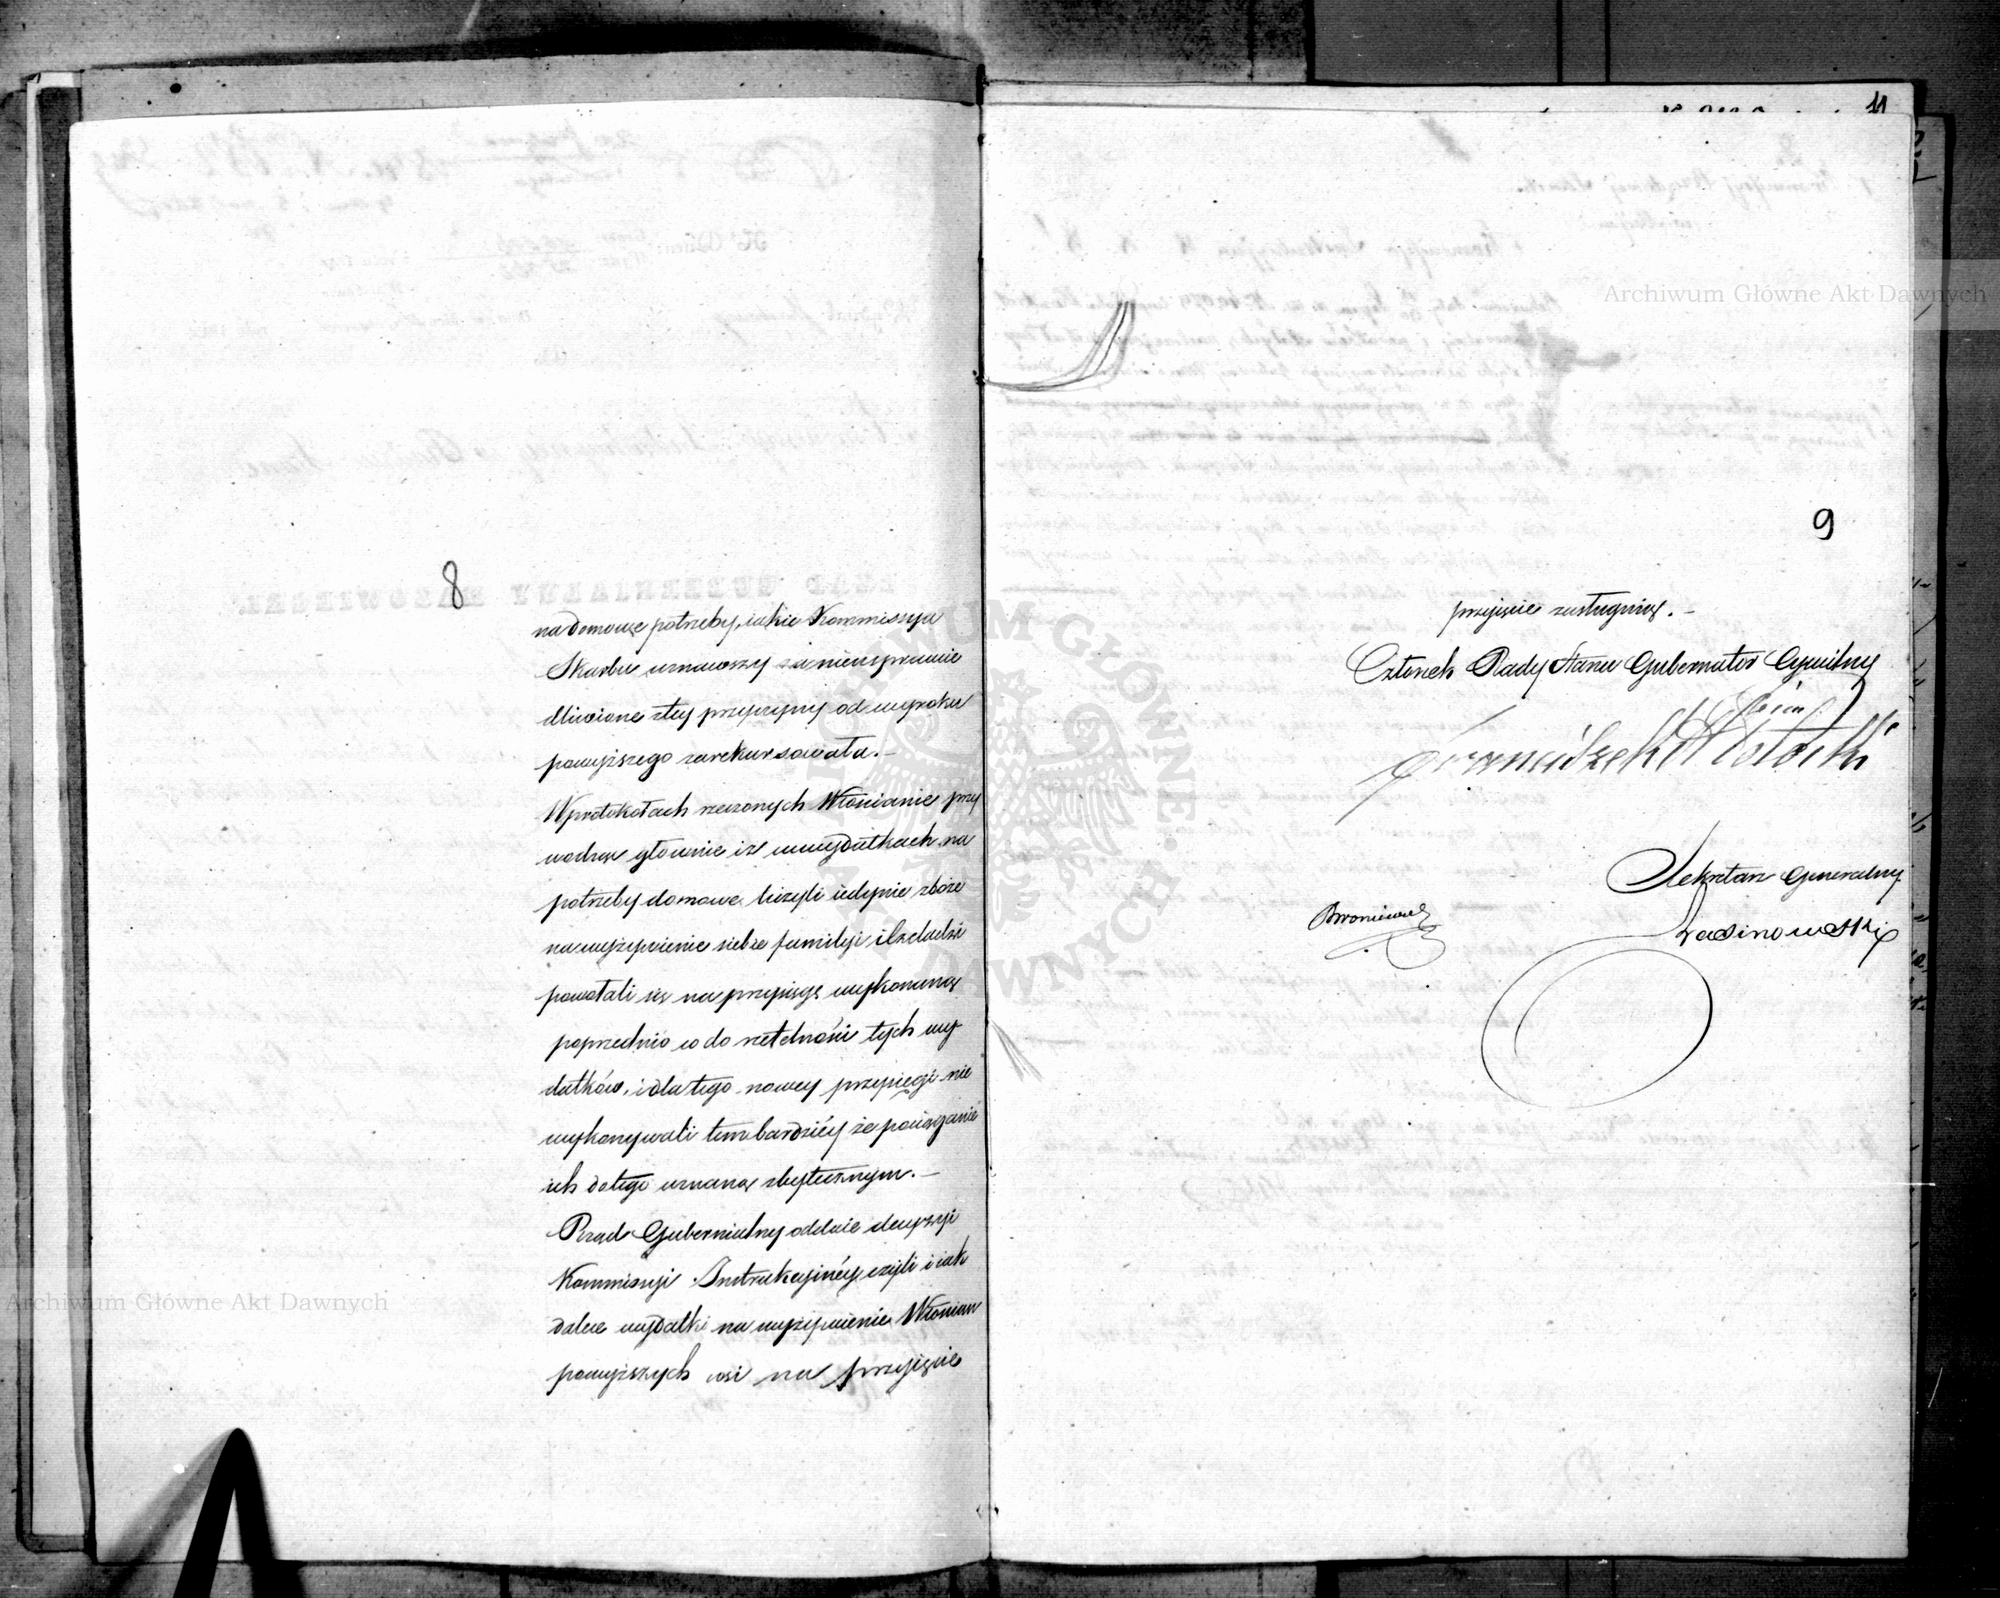 8
na domowe potrzeby, iakie Kommissya
Skarbu uznawszy za nieusprawie
dliwione ztey przyczyny od wyroku
powyższego zarekursowała. –
W protokołach rzeczonych Włościanie przy
wodząc głównie iż w wydatkach na
potrzeby domowe liczyli iedynie zboże
na wyżywienie siebie familiji i czeladzi
powołali się na przysięgę wykonaną
poprzednio co do rzetelności tych wy-
datków, i dla tego nowey przysięgi nie
wykonywali tem bardziéy że pociąganie
ich do tego uznano zbytecznym. –
Rząd Gubernialny oddaie decyzyi
Kommissyi Instrukcyinéy, czyli i iak
dalece wydatki na wyżywienie Włościan
powyższych wsi na przyjęcie
11
9
przyjęcie zasługuią. –
Członek Rady Stanu Gubernator Cywilny
Franciszek Potocki
Sekretarz Generalny
Archiwum Główne Akt Dawnych
Archiwum Główne Akt Dawnych
ARCHIWUM GŁÓWNE AKT DAWNYCH